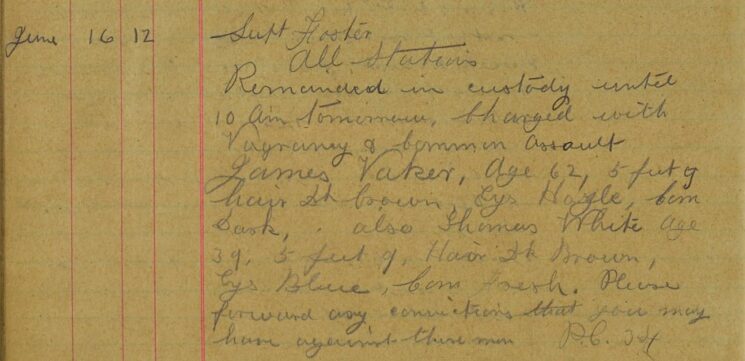 June 16 12 Supt Foster
All Stations
Remainded in custody until
10 Am tomorrow, Charged with
Vagrancy & Common Assault
James Vaker, Age 62, 5 feet 9
hair Dk brown, Eys Hazle, Com
Dark, also Thomas White age
39, 5 feet 9, Hair Dk Brown,
Eys Blue, Com Fresh. Please
forward any convictions that you may
have against these men P.C. 34